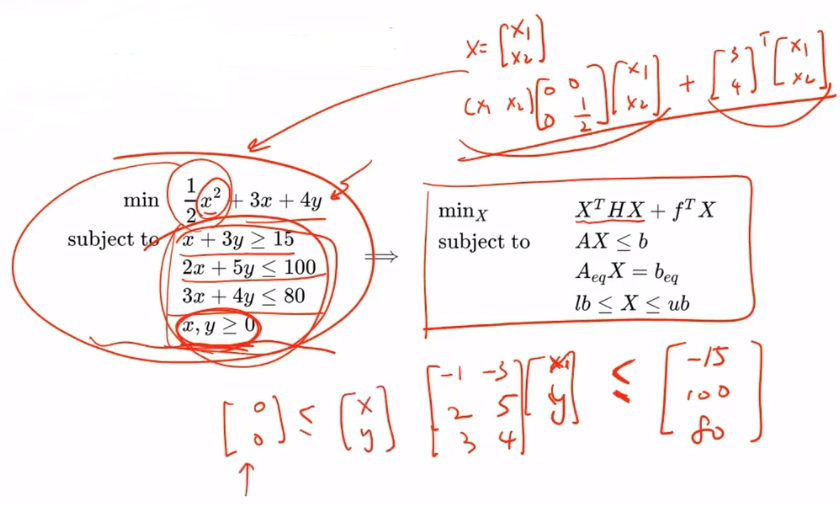 X = [x1 x2]
(x1 x2) [0 0 0 1/2] [x1 x2] + [3 4]^T [x1 x2]
min 1/2 x² + 3x + 4y
subject to x + 3y ≥ 15
2x + 5y ≤ 100
3x + 4y ≤ 80
x, y ≥ 0
⟹
min_X X^T H X + f^T X
subject to AX ≤ b
A_eq X = b_eq
lb ≤ X ≤ ub
[0 0] ≤ [x y]
[-1 -3 2 5 3 4] [x y] ≤ [-15 100 80]